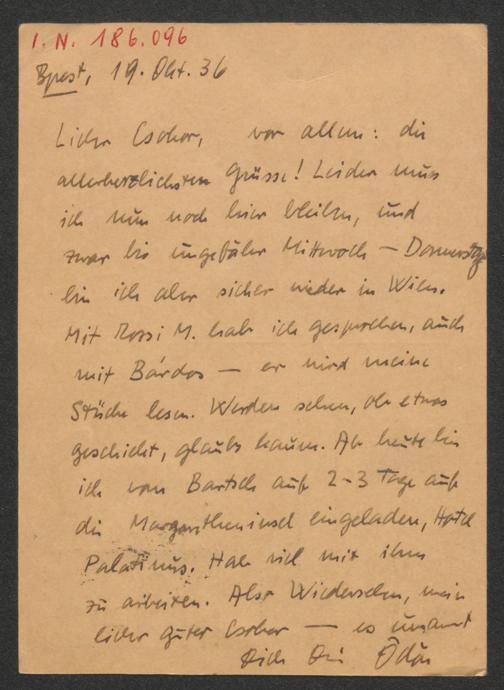 I. N. 186.096
Bpest, 19. Okt. 36
Lieber Csokor, vor allem: die
allerherzlichsten Grüsse! Leider muss
ich nun noch hier bleiben, und
zwar bis ungefähr Mittwoch — Donnerstag
bin ich aber sicher wieder in Wien.
Mit Rossi M. hab ich gesprochen, auch
mit Bárdos — er wird meine
Stücke lesen. Werden sehen, ob etwas
geschieht, glaubs kaum. Ab heute bin
ich von Bartsch auf 2-3 Tage auf
die Margaretheninsel eingeladen, Hotel
Palatinus. Hab viel mit ihm
zu arbeiten. Also Wiedersehen, mein
lieber guter Csokor — es umarmt
Dich Dein Ödön